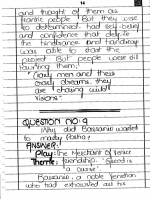 14
and thought of them as
frantic people. But they were
so determined, had self-belief
and confidence that despite
the hindrance and handicap
was able to start the
project. But people were still
taunting them,
"Crazy men and their
crazy dreams. they
are chasing wild
visions".
QUESTION NO. 9
Why did Bassanio wanted
to marry Portia?
ANSWER:-
Play: The Merchant of Venice
Theme: friendship, "Greed is
a curse".
Bassanio, a noble Venetian
who had exhausted all his